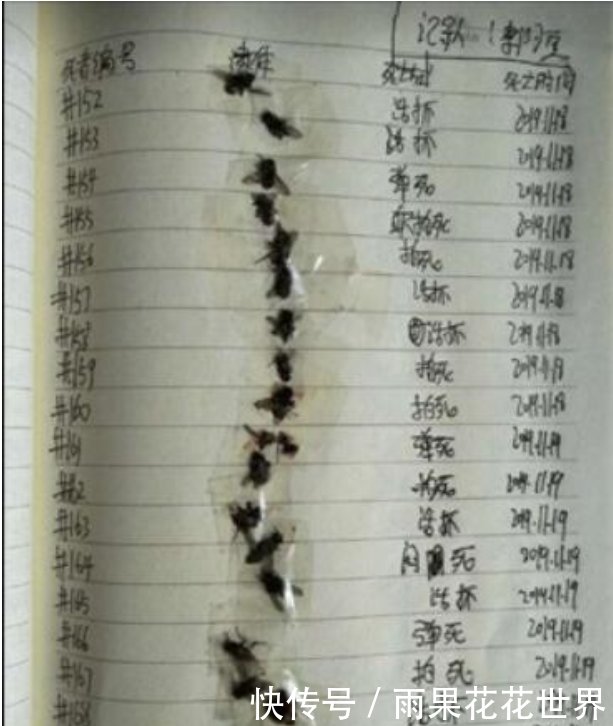 死者编号 死亡时间
#152 活抓 2019.11.18
#153 活抓 2019.11.18
#154 弹死 2019.11.18
#155 拍死 2019.11.18
#156 拍死 2019.11.18
#157 活抓 2019.11.18
#158 活抓 2019.11.18
#159 拍死 2019.11.18
#160 拍死 2019.11.18
#161 弹死 2019.11.19
拍死 2019.11.19
#163 活抓 2019.11.19
#164 死 2019.11.19
#165 活抓 2019.11.19
#166 弹死 2019.11.19
#167 拍死 2019.11.19
#168
快传号 / 雨果花花世界